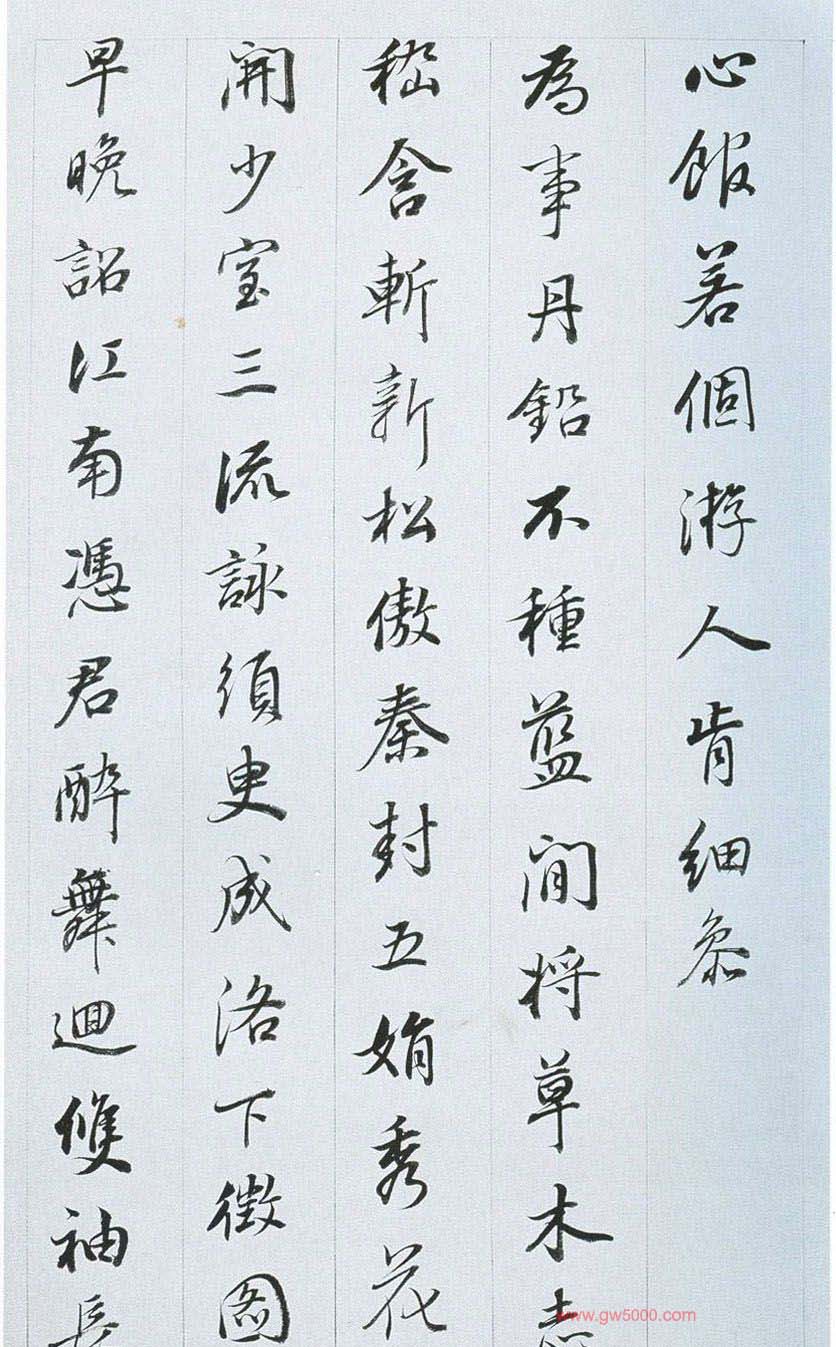 心館若個游人肯細參
為事丹鉛不種藍閒將草木志
嵇含斬新松傲秦封五娟秀花
開少室三流詠須臾成洛下徵圖
早晚詔江南憑君醉舞迴雙袖長
www.gw5000.com